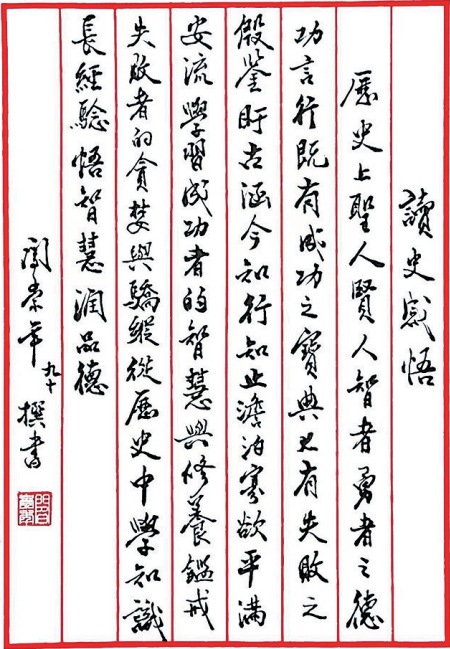 讀史感悟
歷史上聖人賢人智者勇者之德
功言行既有成功之寶典也有失敗之
殷鑒盱古涵今知行知止澹泊寡欲平滿
安流學習成功者的智慧與修養鑑戒
失敗者的貪婪與驕縱從歷史中學知識
長經驗悟智慧潤品德
閻崇年九十撰書